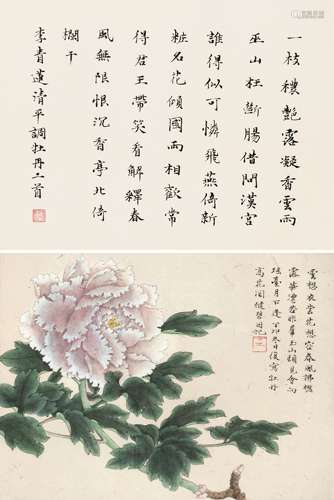 一枝穠艷露凝香雲雨
巫山枉斷腸借問漢宮
誰得似可憐飛燕倚新
粧名花傾國兩相歡常
得君王帶笑看解釋春
風無限恨沉香亭北倚
欄干
李青蓮清平調牡丹二首
雲想衣裳花想容春風拂檻
露華濃若非羣玉山頭見會向
瑤臺月下逢丁卯冬日復寫牡丹
高花閣健碧因記